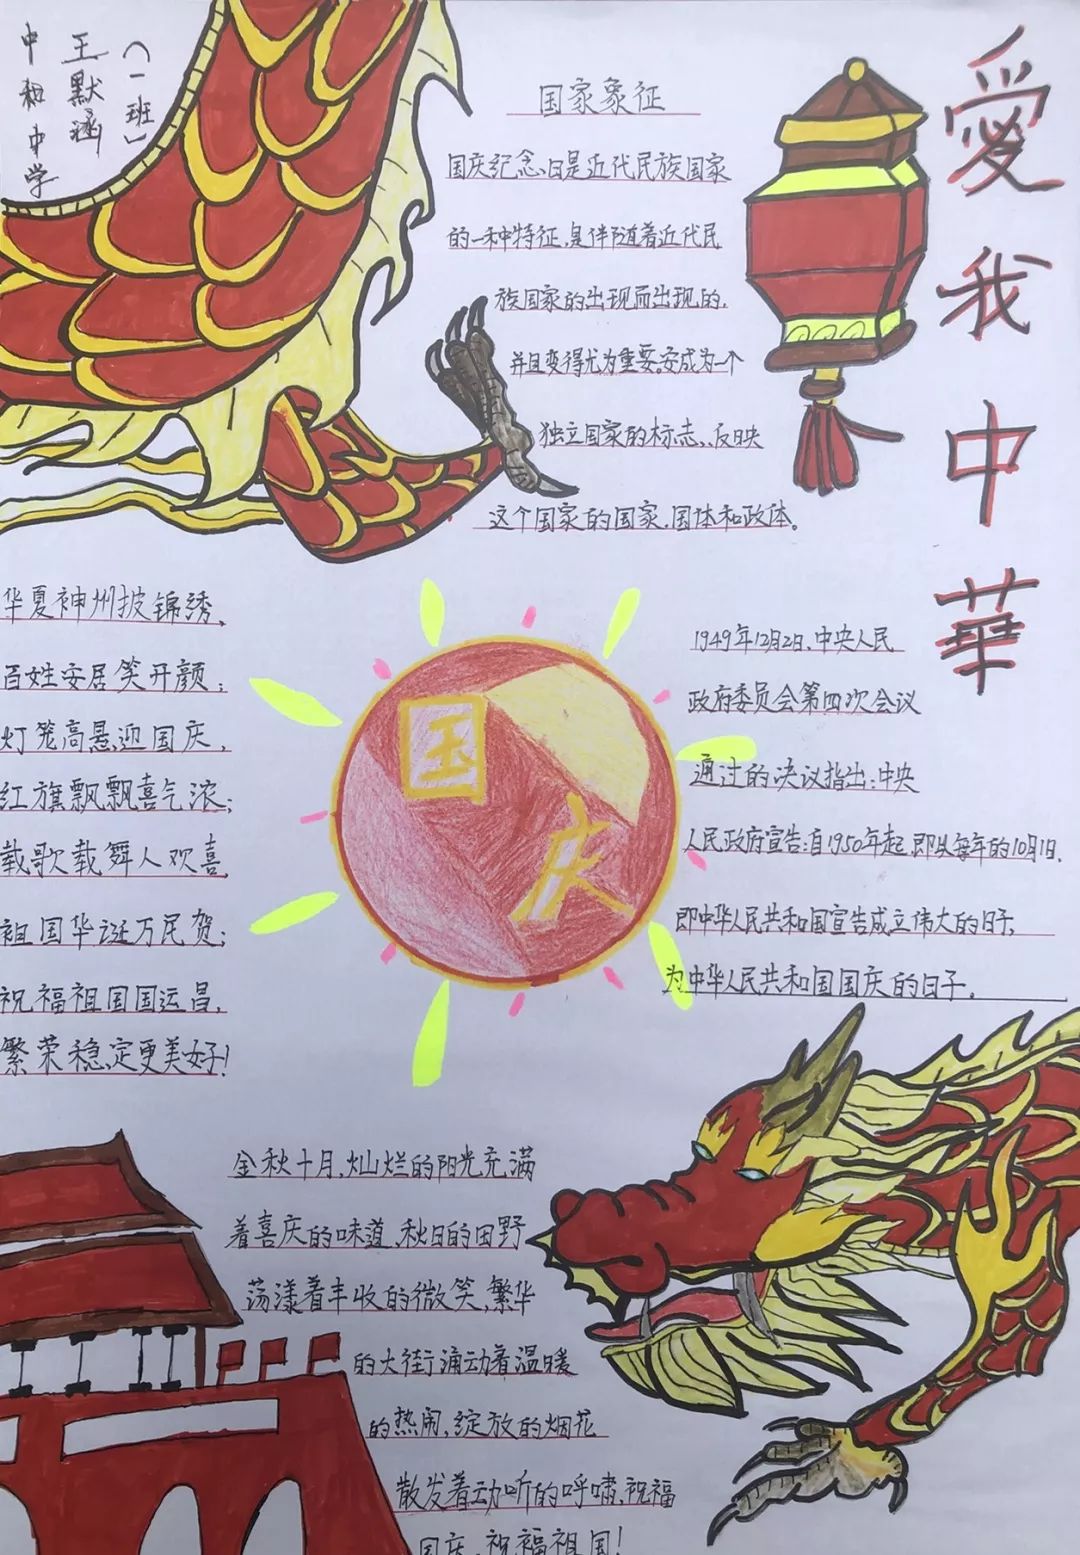 愛我中華
中和中学
王默涵
(一班)
国家象征
国庆纪念日是近代民族国家
的一种特征,是伴随着近代民
族国家的出现而出现的,
并且变得尤为重要。安成为一个
独立国家的标志、反映
这个国家的国家,国体和政体。
华夏神州披锦绣,
百姓安居笑开颜;
灯笼高悬迎国庆,
红旗飘飘喜气浓;
载歌载舞人欢喜,
祖国华诞万民贺;
祝福祖国国运昌,
繁荣稳定更美好!
国庆
1949年12月2日,中央人民
政府委员会第四次会议
通过的决议指出:中央
人民政府宣告:自1950年起,即从每年的10月1日,
即中华人民共和国宣告成立伟大的日子,
为中华人民共和国国庆的日子。
金秋十月,灿烂的阳光充满
着喜庆的味道,秋日的田野
荡漾着丰收的微笑,繁华
的大街涌动着温暖
的热闹,绽放的烟花
散发着动听的呼啸,祝福
国庆,祝福祖国!